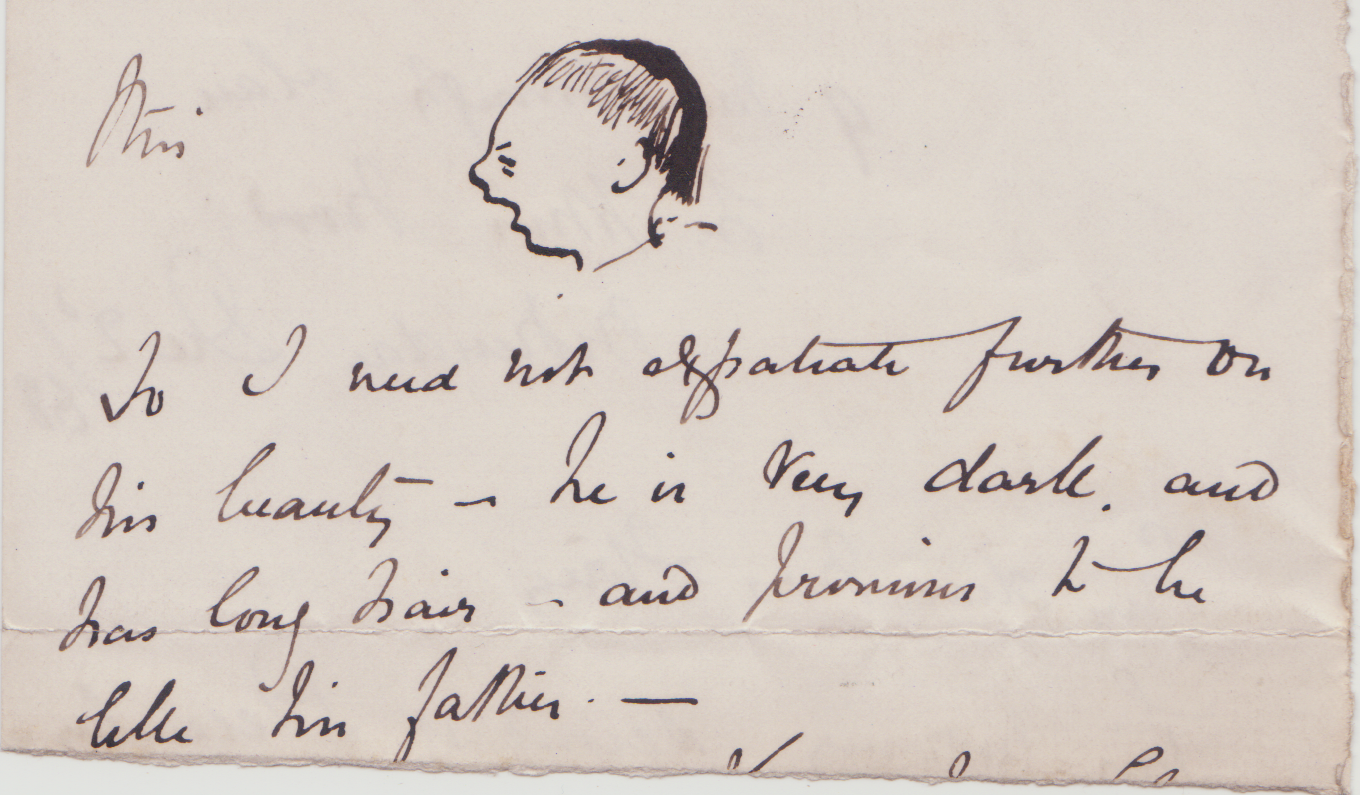 this
So I need not expatiate further on
his beauty – he is very dark, and
has long hair – and promises to be
like his father. —